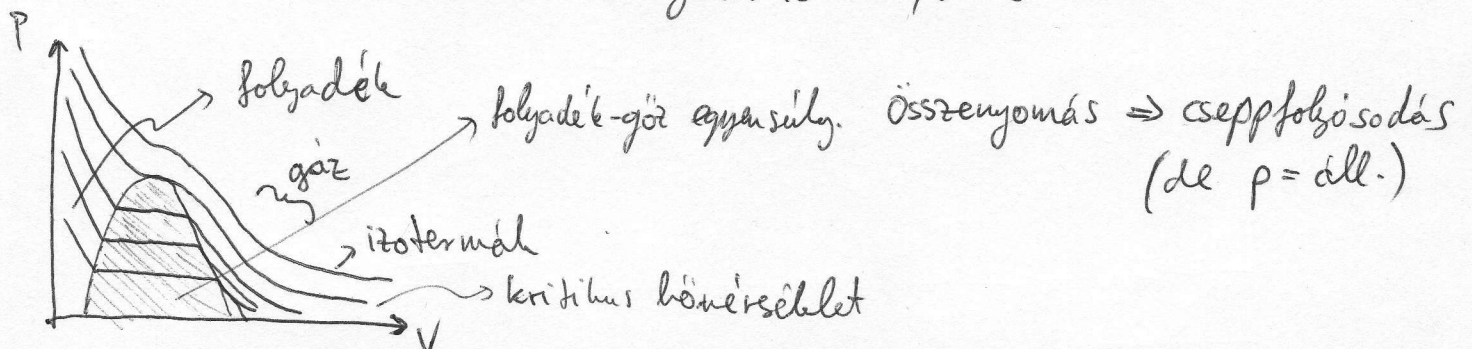 P
folyadék
folyadék-gőz egyensúly. Összenyomás ⇒ cseppfolyósodás
(de p = áll.)
gáz
izotermák
kritikus hőmérséklet
V